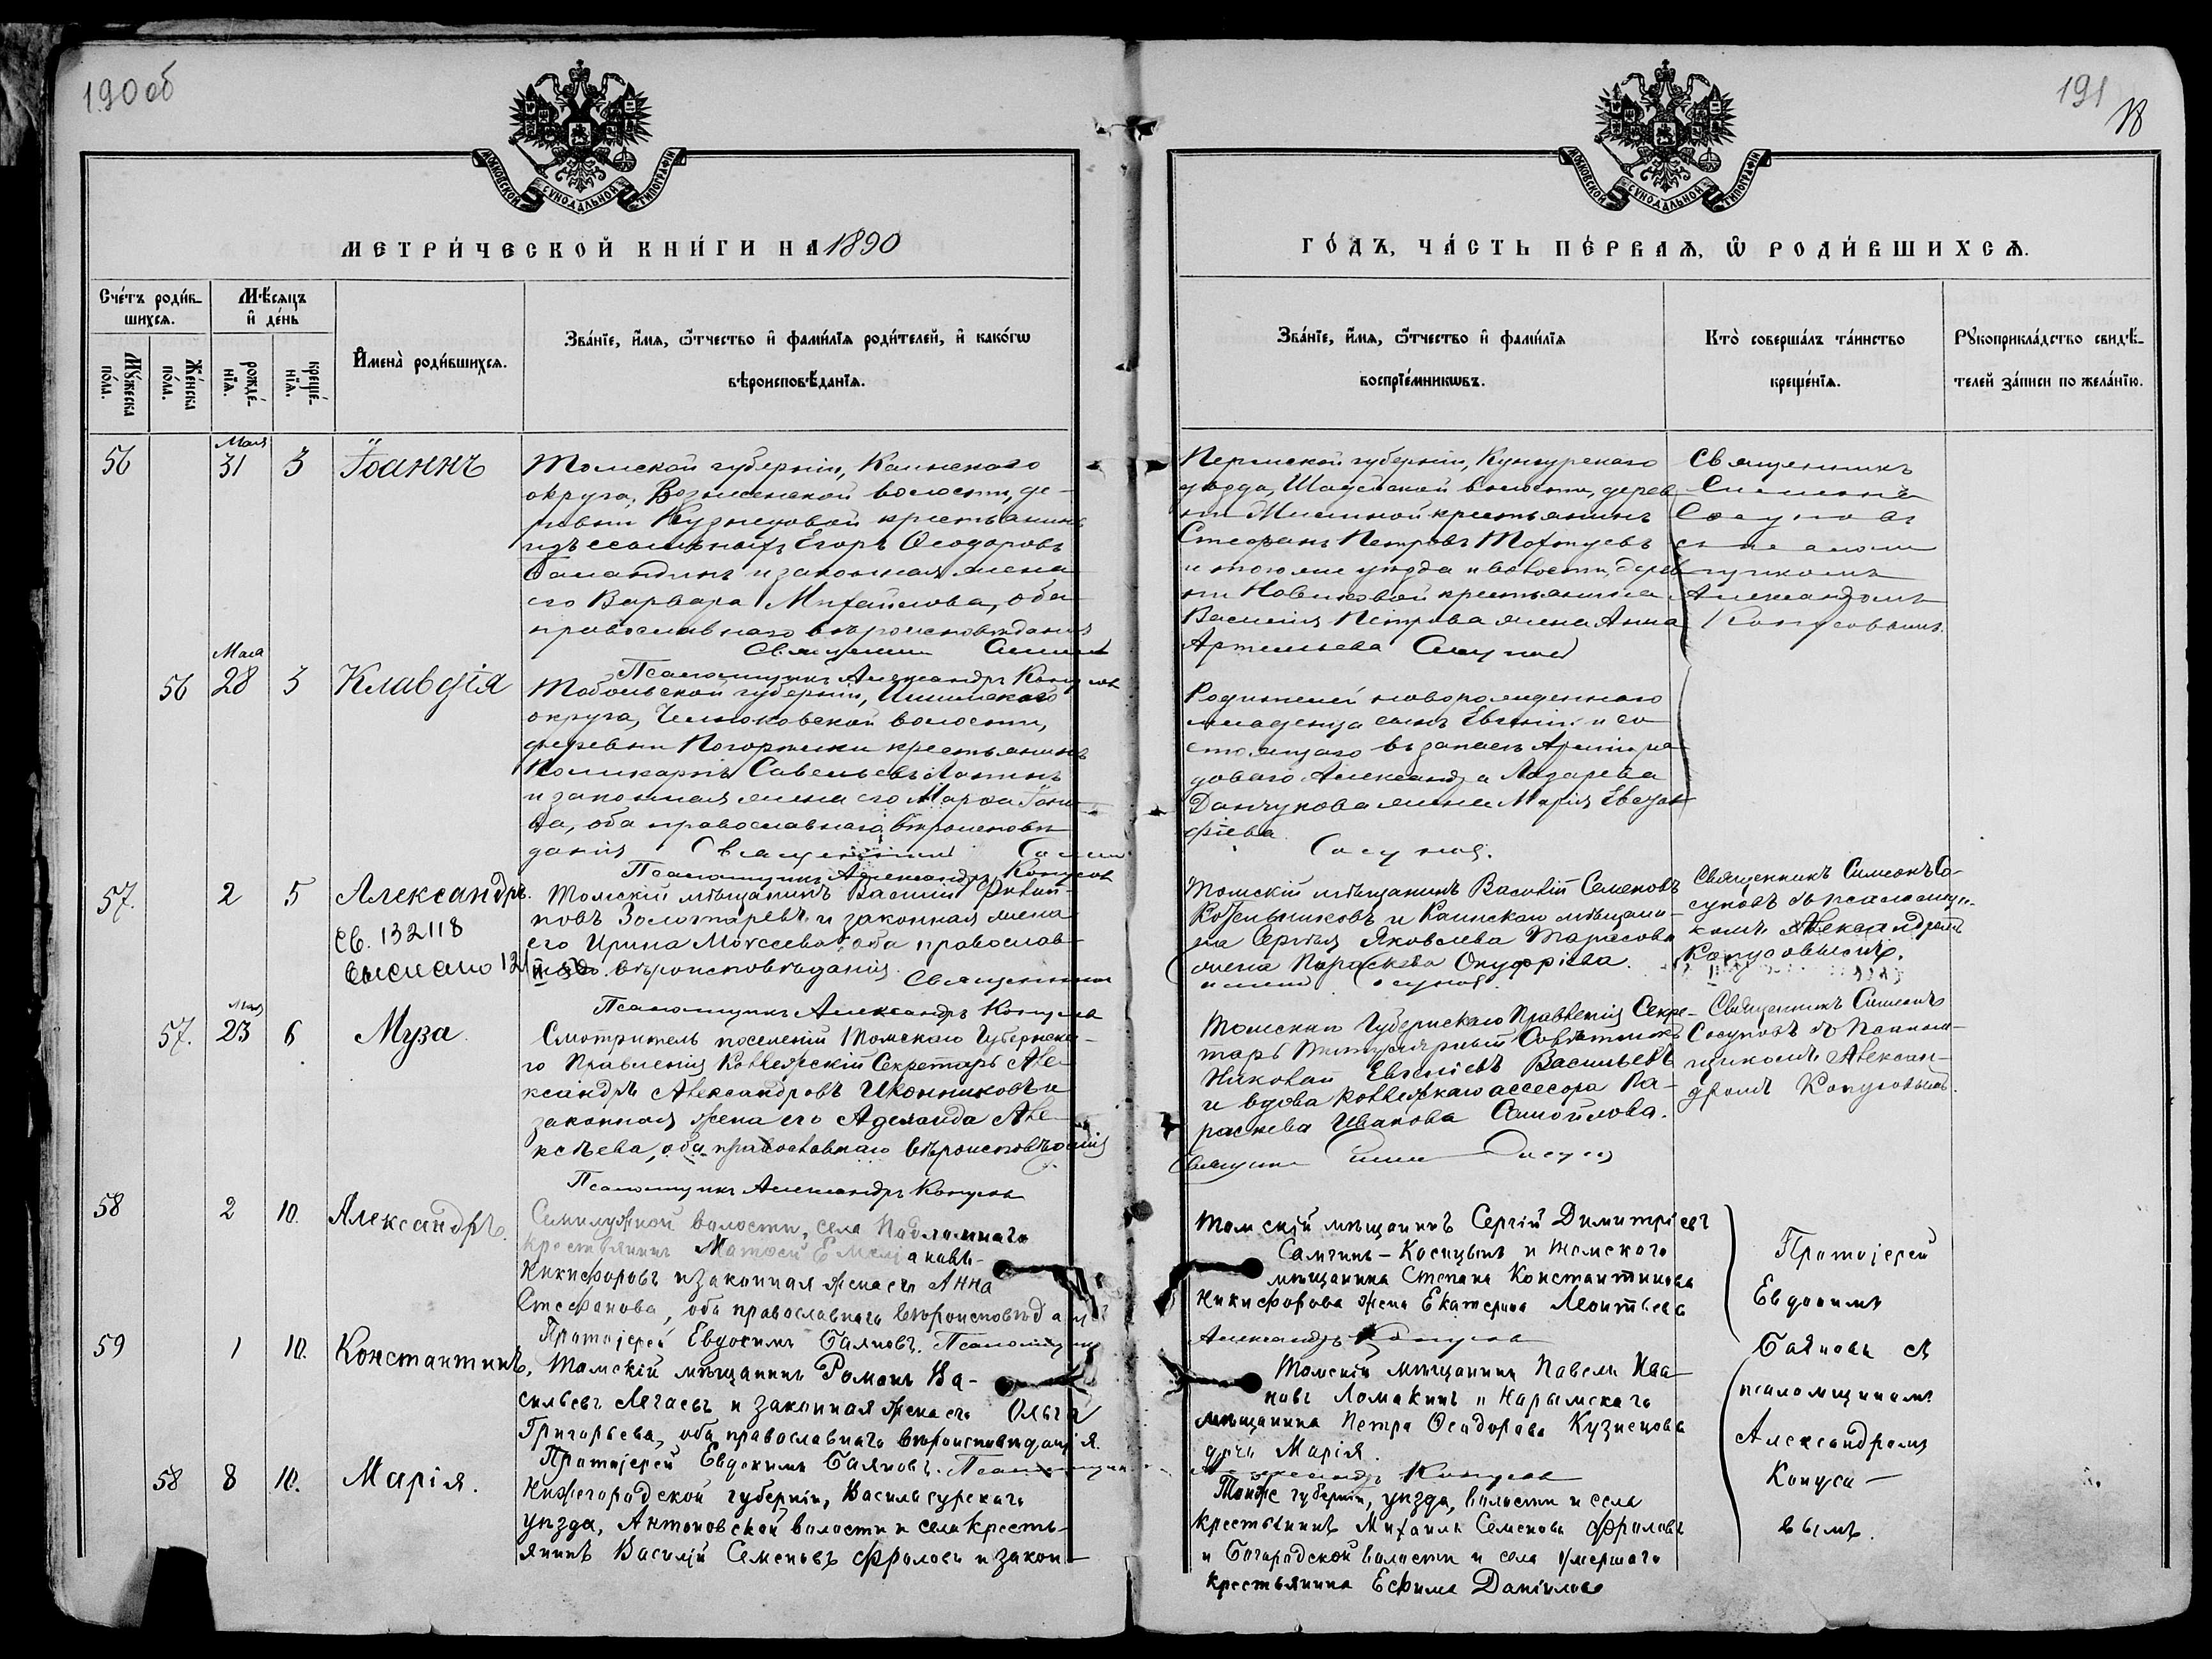 190 об
191
МОСКОВСКОЙ СѴНОДАЛЬНОЙ ТИПОГРАФІИ
МОСКОВСКОЙ СѴНОДАЛЬНОЙ ТИПОГРАФІИ
МЕТРИ́ЧЕСКОЙ КНИ́ГИ НА 1890
ГО́ДЪ, ЧА́СТЬ ПЕ́РВАѦ, Ѿ РОДИ́ВШИХСѦ.
Сче́тъ роди́в-
шихсѧ.
Мѣ́сѧцъ
и҆ де́нь
Мꙋ́жеска по́ла.
Же́нска по́ла.
рожде́-
нїѧ.
креще́-
нїѧ.
И҆мена̀ роди́вшихсѧ.
Зва́нїе, и҆́мѧ, ѻ҆́тчество и҆ фами́лїѧ роди́телей, и҆ како́гѡ
вѣроисповѣ́данїѧ.
Зва́нїе, и҆́мѧ, ѻ҆́тчество и҆ фами́лїѧ
воспрїе́мникѡвъ.
Кто̀ соверша́лъ та́инство
креще́нїѧ.
Рꙋкоприкла́дство свидѣ́-
телей за́писи по жела́нїю.
56
Мая
31
3
Іоаннъ
Томской губерніи, Каинскаго
округа, Вознесенской волости, де-
ревни Кузнецовой крестьянинъ
изъ ссыльныхъ Егоръ Ѳеодоровъ
Баландинъ и законная жена
его Варвара Михайлова, оба
православнаго вѣроисповѣданія
Священникъ Симеонъ
Псаломщикъ Александръ Копусовъ
Пермской губерніи, Кунгурскаго
уѣзда, дерев
ни крестьянинъ
Стефанъ Петровъ
и того же уѣзда и волости, дерев
ни Новиковой крестьянина
Василія Петрова жена Анна
Артемьева Сосуновъ
Священникъ
Симеонъ
Сосуновъ
съ псалом
щикомъ
Александромъ
Копусовымъ.
56
Мая
28
3
Клавдія
Тобольской губерніи, Ишимскаго
округа, волости,
деревни крестьянинъ
Поликарпъ Савельевъ
и законная жена его Марѳа Іоно-
ва, оба православнаго вѣроисповѣ
данія Священникъ Симеонъ
Псаломщикъ Александръ Копусовъ
Родителей новорожденнаго
младенца сынъ Евгеній и со
стоящаго въ запасѣ Арміи ря
доваго Александра Лазарева
Данчукова жена Марія
фіева
Сосуновъ.
57.
2
5
Александръ.
Св. 132118
выслано 12/
Томскій мѣщанинъ Василій Филип-
повъ Золотаревъ и законная жена
его Ирина Моисеева, оба православ-
наго вѣроисповѣданія. Священникъ
Псаломщикъ Александръ Копусовъ
Томскій мѣщанинъ Василій Семеновъ
Котельниковъ и Каинскаго мѣщани-
на Сергѣя Яковлева Тарасова
жена Параскева Онуфріева.
Симеонъ Сосуновъ.
Священникъ Симеонъ Со-
суновъ съ псаломщи-
комъ Александромъ
Копусовымъ.
57.
Мая
23
6
Муза
Смотритель поселеній Томскаго Губернска-
го Правленія Коллежскій Секретарь Але-
ксандръ Александровъ Иконниковъ и
законная жена его Аделаида Але-
ксѣева, оба православнаго вѣроисповѣданія
Псаломщикъ Александръ Копусовъ
Томскаго Губернскаго Правленія Секре-
тарь Титулярный Совѣтникъ
Николай Евгеніевъ Васильевъ
и вдова Коллежскаго ассесора Па-
раскева Иванова Самойлова.
Священникъ Симеонъ Сосуновъ
Священникъ Симеонъ
Сосуновъ съ Псалом-
щикомъ Алексан-
дромъ Копусовымъ.
58
2
10.
Александръ.
Семилужной волости, села Подломнаго
крестьянинъ Матѳей Емеліановъ
Никифоровъ и законная жена его Анна
Стефанова, оба православнаго вѣроисповѣданія
Протоіерей Евдокимъ Баяновъ. Псаломщикъ
Томскій мѣщанинъ Сергій Димитріевъ
Самгинъ-Косицынъ и Томскаго
мѣщанина Степана Константинова
Никифорова жена Екатерина Леонтьева
Александръ Копусовъ
Протоіерей
Евдокимъ
Баяновъ съ
псаломщикомъ
Александромъ
Копусо-
вымъ.
59
1
10.
Константинъ.
Томскій мѣщанинъ Романъ Ва-
сильевъ Легаевъ и законная жена его Ольга
Григорьева, оба православнаго вѣроисповѣданія.
Протоіерей Евдокимъ Баяновъ. Псаломщикъ
Томскій мѣщанинъ Павелъ Ива-
новъ Ломакинъ и Нарымскаго
мѣщанина Петра Ѳеодорова Кузнецова
дочь Марія.
Александръ Копусовъ
58
8
10.
Марія.
Нижегородской губерніи, Васильсурскаго
уѣзда, Антоновской волости и села кресть-
янинъ Василій Семеновъ Фроловъ и закон-
Тойже губерніи, уѣзда, волости и села
крестьянинъ Михаилъ Семеновъ Фроловъ
и Богородской волости и села умершаго
крестьянина Ефима Данилова